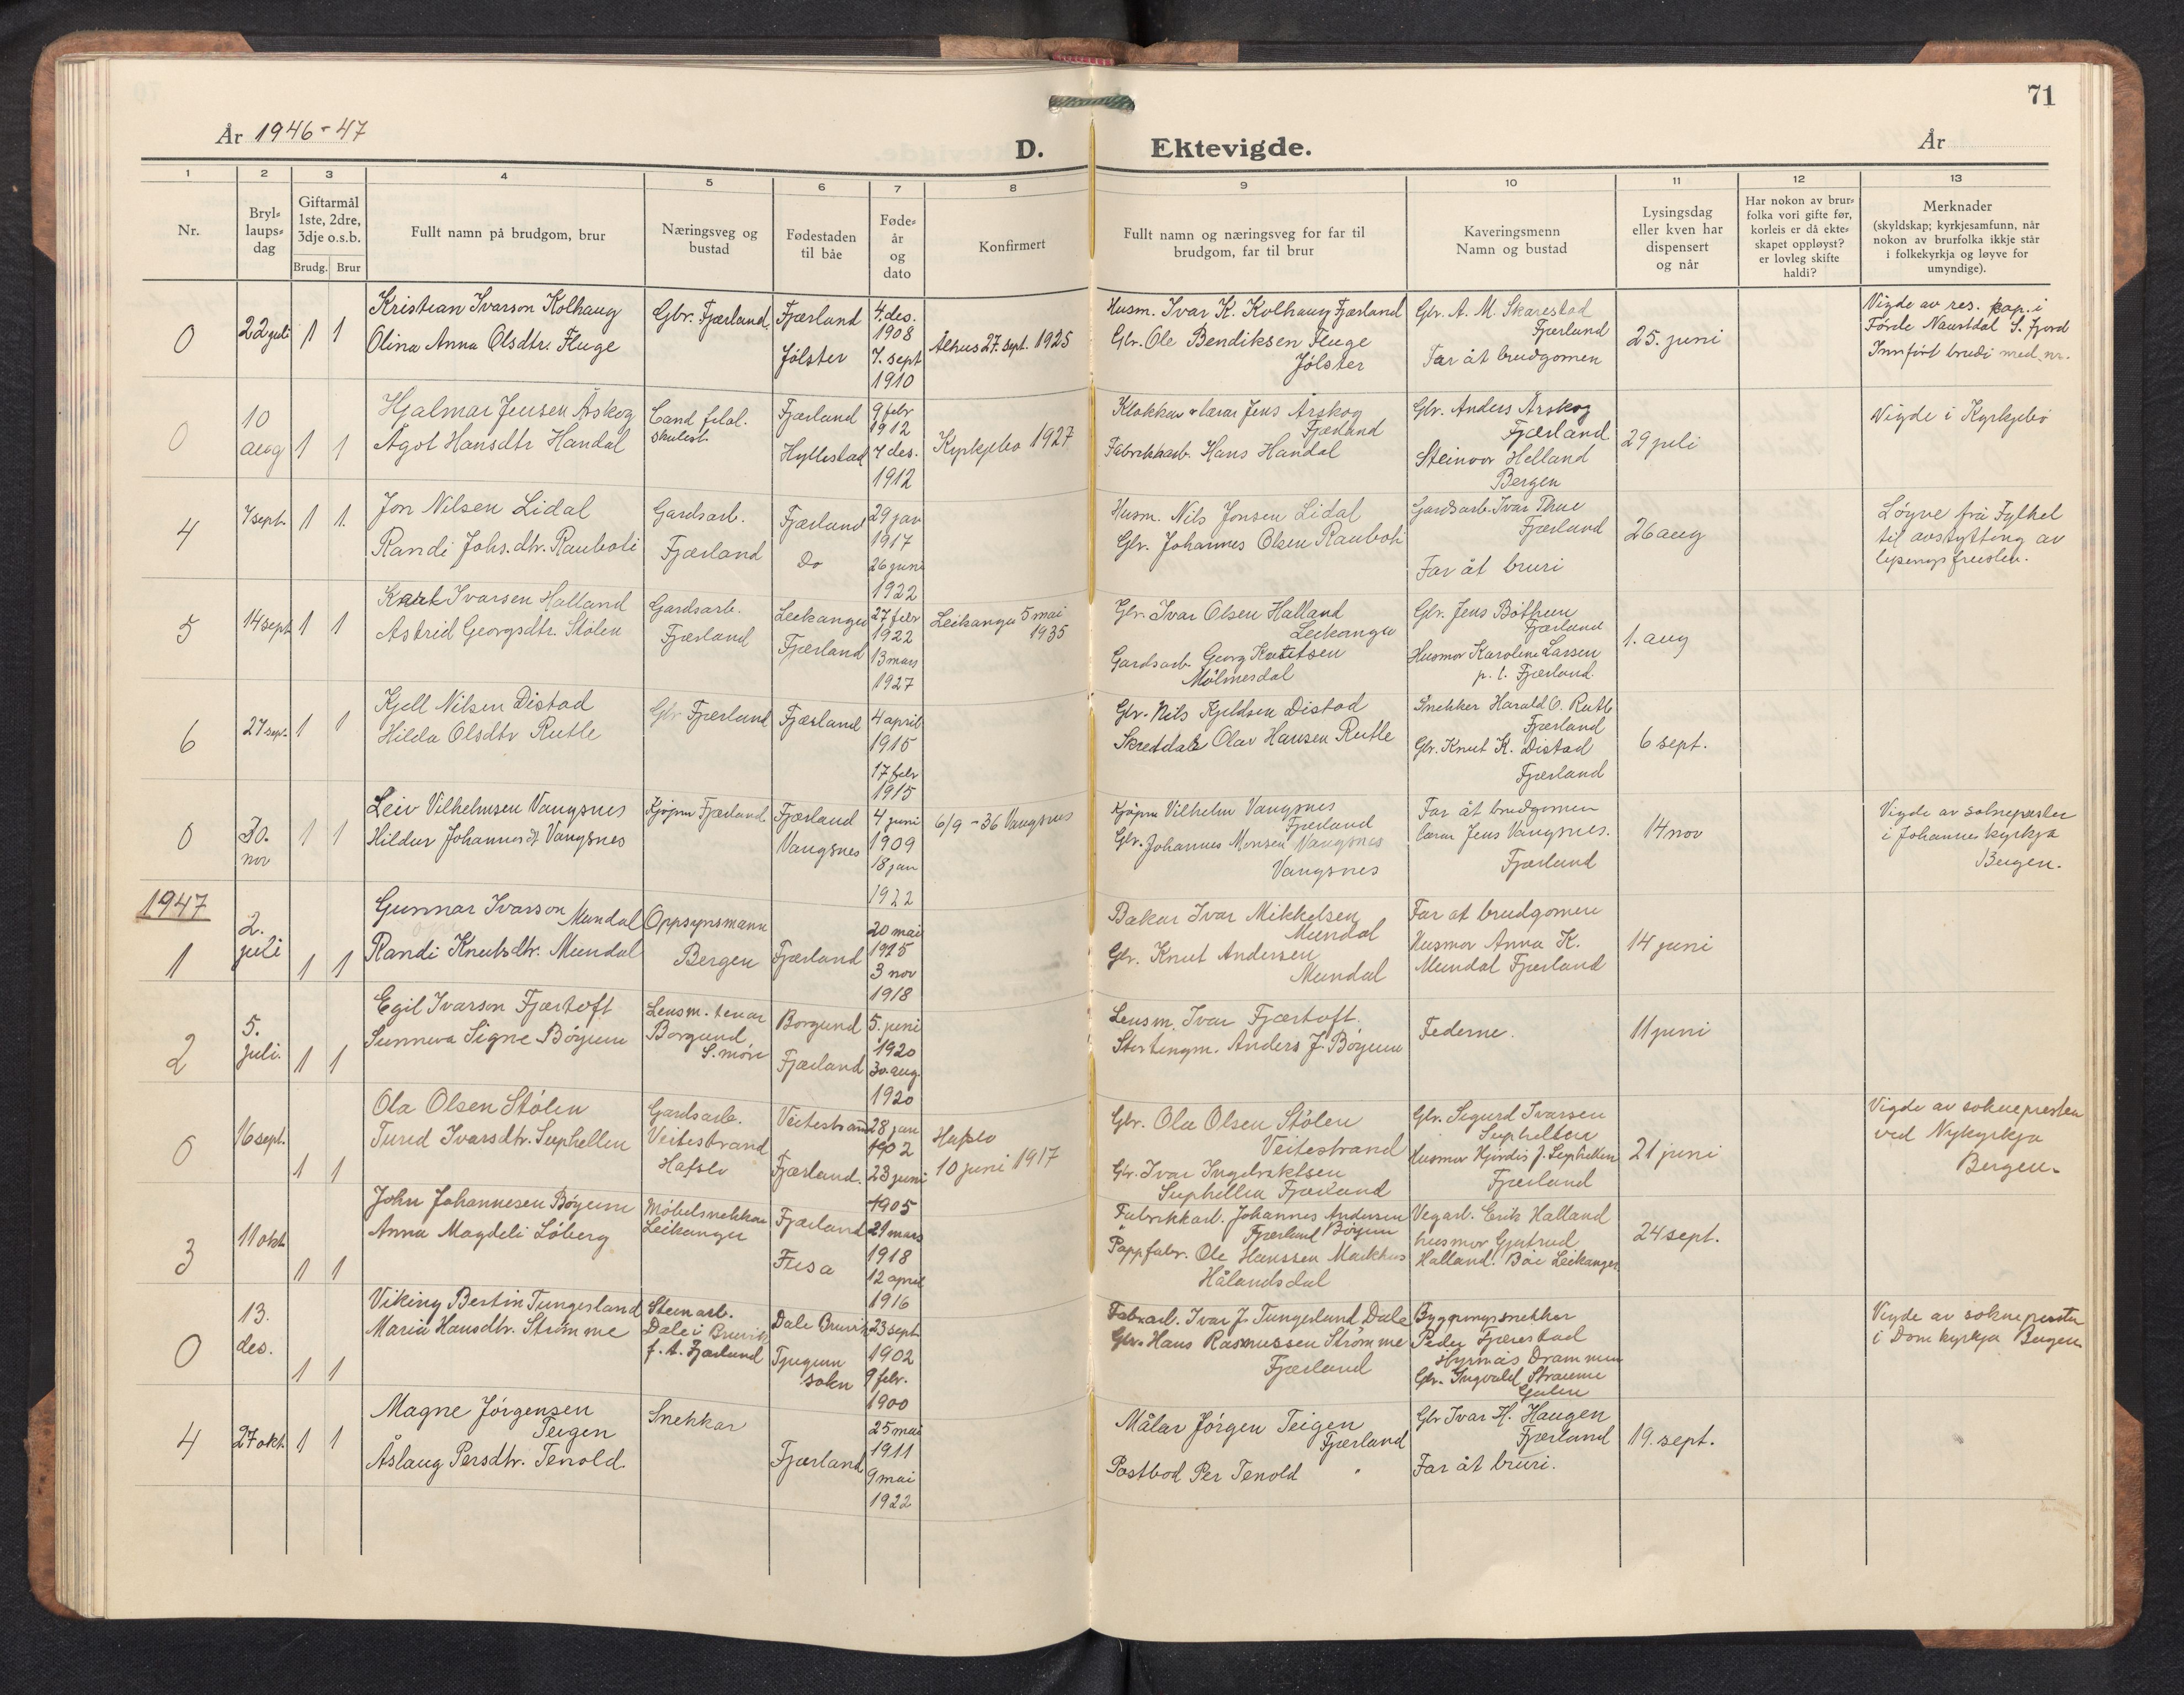 71
År 1946-47
D. Ektevigde.
År
1 2 3 4 5 6 7 8 9 10 11 12 13
Nr.
Bryl-
laups-
dag
Giftarmål
1ste, 2dre,
3dje o.s.b.
Brudg. Brur
Fullt namn på brudgom, brur
Næringsveg og
bustad
Fødestaden
til båe
Føde-
år
og
dato
Konfirmert
Fullt namn og næringsveg for far til
brudgom, far til brur
Kaveringsmenn
Namn og bustad
Lysingsdag
eller kven har
dispensert
og når
Har nokon av brur-
folka vori gifte før,
korleis er då ekte-
skapet oppløyst?
er lovleg skifte
haldi?
Merknader
(skyldskap; kyrkjesamfunn, når
nokon av brurfolka ikkje står
i folkekyrkja og løyve for
umyndige).
0
22 juli
1 1
Kristian Ivarson Kolhaug
Olina Anna Olsdtr. Fluge
Gbr. Fjærland
Fjærland
Jølster
4. des.
1908
7. sept
1910
Ålhus 27. sept. 1925
Husm. Ivar K. Kolhaug Fjærland
Gbr. Ole Bendiksen Fluge
Jølster
Gbr. A. M. Skarestad
Fjærland
Far åt brudgomen
25. juni
Vigde av res. kap. i
Førde Naustdal S. Fjord
Innført brudi med nr.
0
10
aug
1 1
Hjalmar Jensen Årskog
Ågot Hansdtr Handal
Cand filol.
skulest.
Fjærland
Hyllestad
9 febr
1912
7 des.
1912
Kyrkjebø 1927
Klokkar & lærar Jens Årskog
Fjærland
Fabrikkarb. Hans Handal
Gbr. Anders Årskog
Fjærland
Steinvor Helland
Bergen
29 juli
Vigde i Kyrkjebø
4
7 sept.
1 1.
Jon Nilsen Lidal
Randi Johs.dtr. Rauboti
Gardsarb.
Fjærland
Fjærland
Do
29 jan
1917
26 juni
1922
Husm. Nils Jonsen Lidal
Gbr. Johannes Olsen Rauboti
Gardsarb. Ivar Thue
Fjærland
Far åt bruri
26 aug
Løyve frå Fylket
til avstytting av
lysingsfristen.
5
14 sept
1 1
Ivarsen Halland
Astrid Georgsdtr. Stølen
Gardsarb.
Fjærland
Leikanger
Fjærland
27 febr
1922
13 mars
1927
Leikanger 5 mai
1935
Gbr. Ivar Olsen Halland
Leikanger
Gardsarb. Georg
Mølmesdal
Gbr. Jens Bøthun
Fjærland
Husmor Karoline Larsen
p. t. Fjærland.
1. aug
6
27 sep.
1 1
Kjell Nilsen Distad
Hilda Olsdtr Rutle
Gbr Fjærland
Fjærland
4 april
1915
17 febr
1915
Gbr. Nils Kjeldsen Distad
Skreddar Olav Hansen Rutle
Snekker Harald O. Rutle
Fjærland
Gbr. Knut K. Distad
Fjærland
6 sept.
0
30.
nov
1 1
Leiv Vilhelmsen Vangsnes
Hildur Johannesdt Vangsnes
Kjøpm Fjærland
Fjærland
Vangsnes
4 juni
1909
18 jan
1922
6/9 - 36 Vangsnes
Kjøpm Vilhelm Vangsnes
Fjærland
Gbr. Johannes Monsen Vangsnes
Vangsnes
Far åt brudgomen
lærar Jens Vangsnes.
Fjærland
14 nov
Vigde av soknepresten
i Johannes kyrkja
Bergen.
1947
1
2.
juli
1 1
Gunnar Ivarson Mundal
Randi Knutsdtr. Mundal
Oppsynsmann
Bergen
Fjærland
20 mai
1915
3 nov
1918
Bakar Ivar Mikkelsen
Mundal
Gbr. Knut Andersen
Mundal
Far at brudgomen
Husmor Anna K.
Mundal Fjærland
14 juni
2
5.
juli.
1 1
Egil Ivarson Fjærtoft
Sunneva Signe Bøyum
Lensm. tenar
Borgund
S. møre
Borgund
Fjærland
5. juni
1920
30. aug.
1920
Lensm. Ivar Fjærtoft.
Stortingm. Anders J. Bøyum
Federne.
11 juni
0
16 sept.
1 1
Ola Olsen Stølen
Turid Ivarsdtr. Suphellen
Gardsarb.
Veitestrand
Hafslo
Veitestrand
Fjærland.
28 jan
1902
23 juni
1905
Hafslo
10 juni 1917
Gbr. Ola Olsen Stølen
Veitestrand
Gbr. Ivar Ingebriktsen
Suphellen Fjærland
Gbr. Sigurd Ivarsen
Suphellen
Husmor Hjørdis J. Suphellen
Fjærland
21 juni
Vigde av soknepresten
ved Nykyrkja
Bergen.
3
11 okt
1 1
John Johannesen Bøyum
Anna Magdeli Løberg
Møbelsnekkar
Leikanger
Fjærland
Fusa
21 mars
1918
12 april
1916
Fabrikkarb. Johannes Andersen
Fjærland Bøyum
Pappfabr. Ole Hanssen Markhus
Hålandsdal
Vegarb. Erik Halland
husmor Gjertrud
Halland. Bøe Leikanger
24 sept.
0
13.
des.
1 1
Viking Bertin Tungesland
Maria Hansdtr. Strømme
Steinarb.
Dale i Bruvik
f. t. Fjærland
Dale Bruvik
Tjugum
sokn
23 sept
1902
9 febr.
1900
Fabr.arb. Ivar J. Tungesland Dale
Gbr. Hans Rasmussen Strømme
Fjærland
Byggningssnekker
Peder Fjærestad
Drammen
Gbr. Ingvald Straume
Gulen
Vigde av soknepresten
i Domkyrkja Bergen
4
27 okt.
1 1
Magne Jørgensen
Teigen
Åslaug Persdtr. Tenold
Snekkar
Fjærland
25 mai
1911
9 mai
1922
Målar Jørgen Teigen
Fjærland
Postbod Per Tenold "
Gbr Ivar H. Haugen
Fjærland
Far åt bruri.
19. sept.